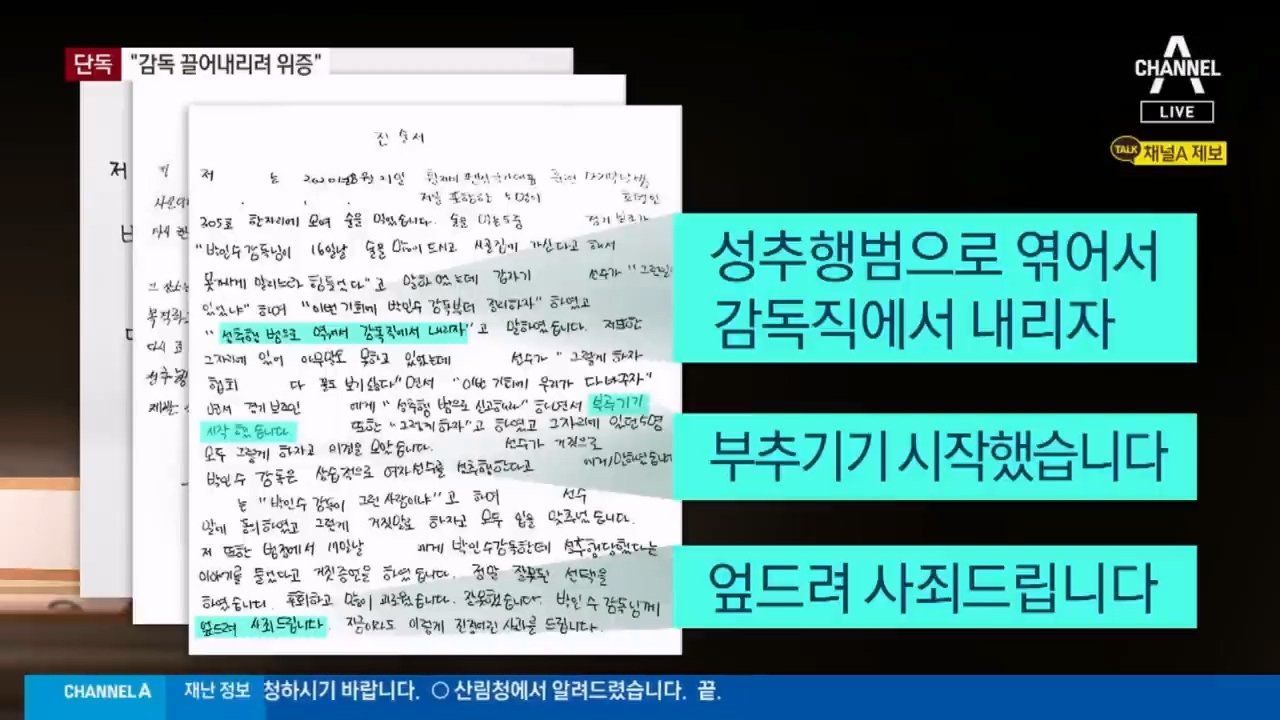 단독 "감독 끌어내리려 위증"
CHANNEL A
LIVE
TALK 채널A 제보
진 술 서
저 는 2020년 8월 21일
저를 포함한 5명이
305호 한자리에 모여 술을 먹었습니다. 술을 먹는도중
"박인수 감독님이 16일날 술을 많이 드시고 시골집에 가신다고 해서
못가게 말리느라 힘들었다"고 말하였는데 갑자기 선수가 "그런일이
있었냐" 하며 "이번 기회에 박인수 감독부터 정리하자" 하였고
"성추행 범으로 엮어서 감독직에서 내리자"고 말하였습니다. 저또한
그자리에 있어 아무말도 못하고 있었는데 선수가 "그렇게 하자
협회 다 꼴도 보기싫다" 면서 "이번 기회에 우리가 다 바꾸자"
면서 경기 보조인 에게 "성추행 범으로 신고해라" 하면서 부추기기
시작 했습니다. 또한 "그렇게 하자"고 하였고 그자리에 있던 5명
모두 그렇게 하자고 의견을 모았습니다. 선수가 거짓으로
박인수 감독은 상습적으로 여자선수를 성추행한다고 에게 말하였습니다
는 "박인수 감독이 그런 사람이냐"고 하며 선수
말에 동의하였고 그렇게 거짓말로 하자고 모두 입을 맞추었습니다.
저 또한 법정에서 17일날 에게 박인수감독한테 성추행당했다는
이야기를 들었다고 거짓증언을 하였습니다. 정말 잘못된 선택을
하였습니다. 후회하고 많이 괴로웠습니다. 잘못했습니다. 박인수 감독님께
엎드려 사죄드립니다. 지금이라도 이렇게 진정어린 사과를 드립니다.
성추행범으로 엮어서
감독직에서 내리자
부추기기 시작했습니다
엎드려 사죄드립니다
CHANNEL A 재난 정보 청하시기 바랍니다. ○ 산림청에서 알려드렸습니다. 끝.